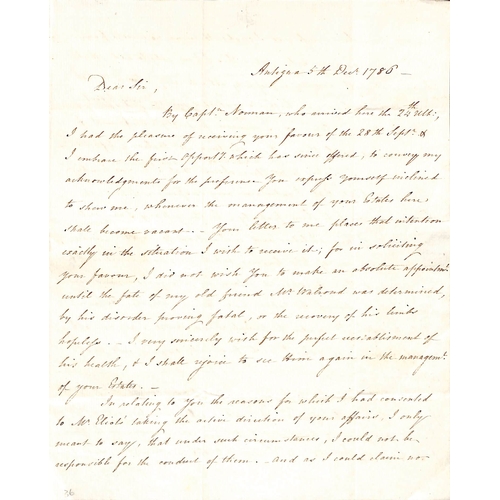 Antigua 5th Decr. 1786 —
Dear Sir,
By Captn. Norman, who arrived here the 24th Ulto.,
I had the pleasure of receiving your favour of the 28th Septr. &
I embrace the first Opporty. which has since offered, to convey my
acknowledgments for the preference You express yourself inclined
to show me, whenever the management of your Estates here,
shall become vacant. — Your letter to me places that intention
exactly in the situation I wish to receive it; for in soliciting
your favour, I did not wish You to make an absolute appointmt.
until the fate of my old friend Mr. Walrond was determined,
by his disorder proving fatal, or the recovery of his limbs
hopeless. — I very sincerely wish for the perfect reestablishment of
his health, & I shall rejoice to see him again in the managemt.
of your Estates. —
In relating to You the reasons for which I had consented
to Mr. Eliot's taking the active direction of your affairs, I only
meant to say, that under such circumstances, I could not be
responsible for the conduct of them. — and as I could claim no